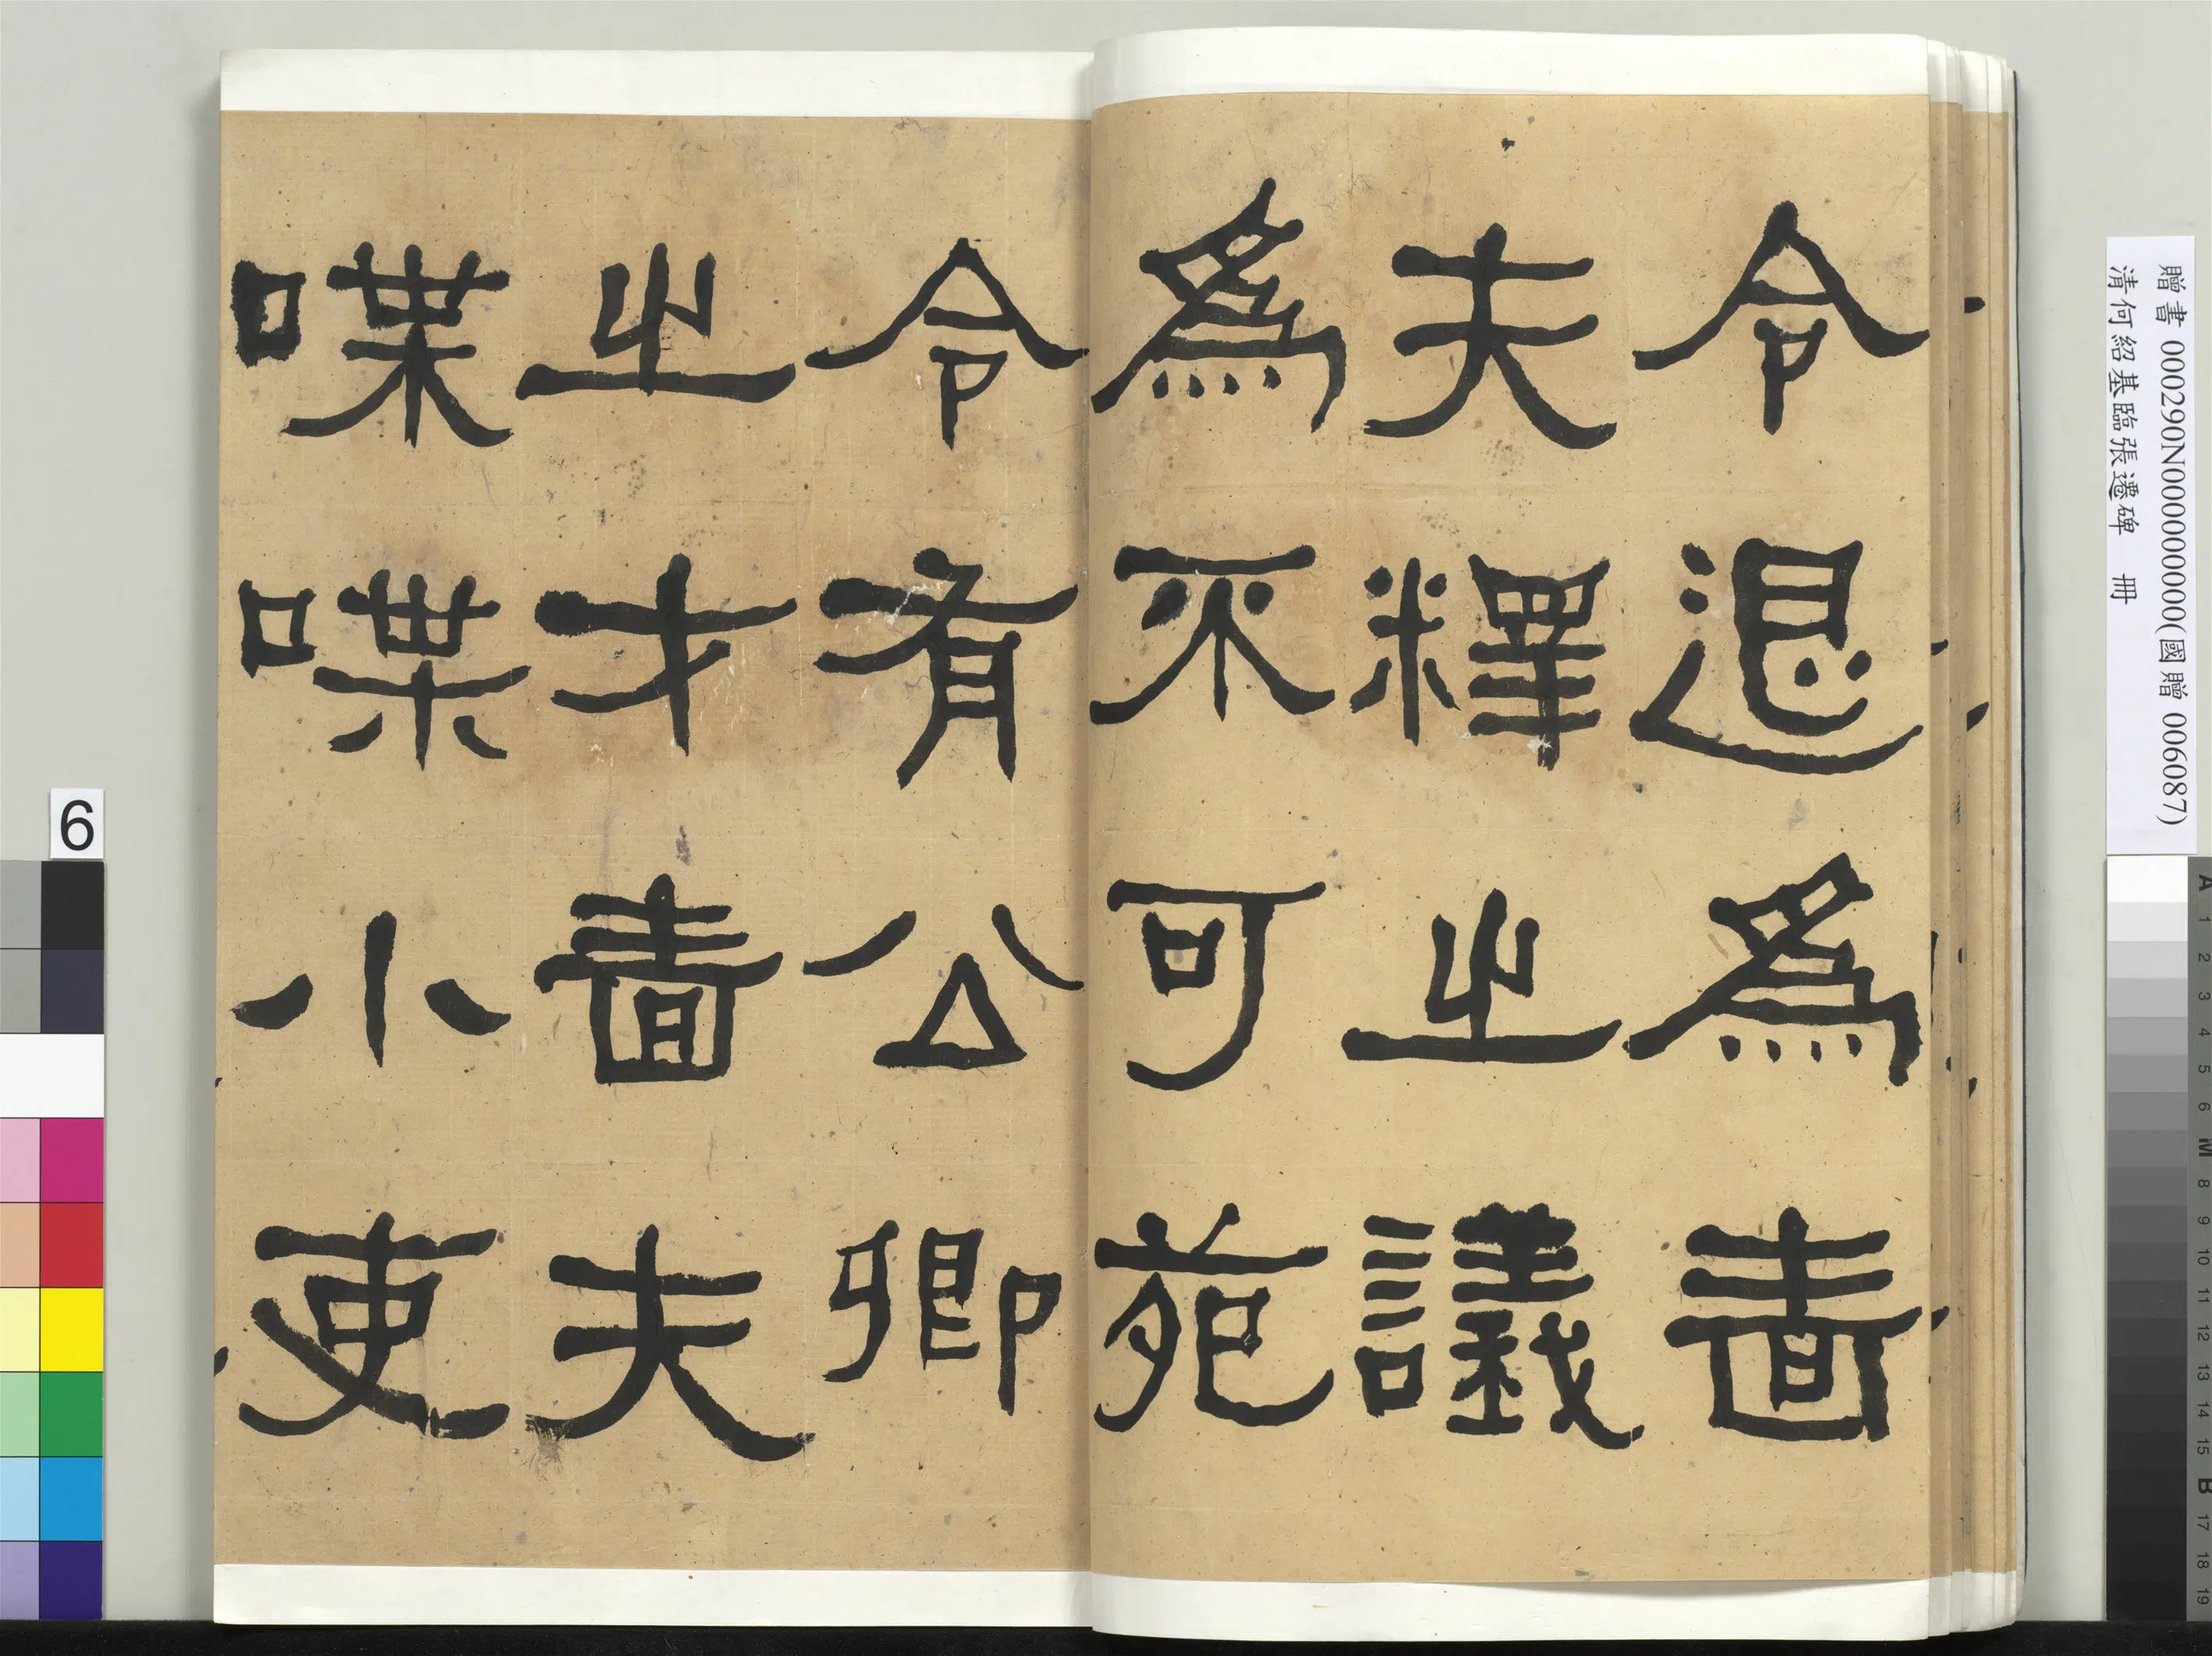 令退為嗇
夫釋之議
為不可苑
令有公卿
之才嗇夫
喋喋小吏
贈書 000290N000000000(國贈 006087)
清何紹基臨張遷碑 冊
6
A 1 2 3 4 5 6 M 8 9 10 11 12 13 14 15 B 17 18 19